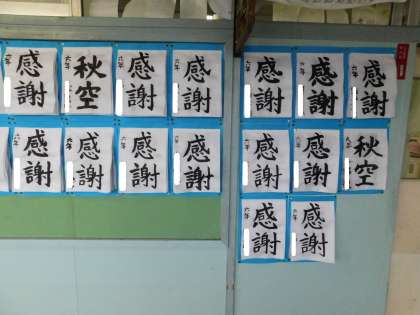 感謝
六年
秋空
六年
感謝
六年
感謝
六年
感謝
六年
感謝
六年
感謝
六年
感謝
六年
感謝
六年
感謝
六年
感謝
六年
感謝
六年
感謝
六年
秋空
六年
感謝
六年
感謝
六年